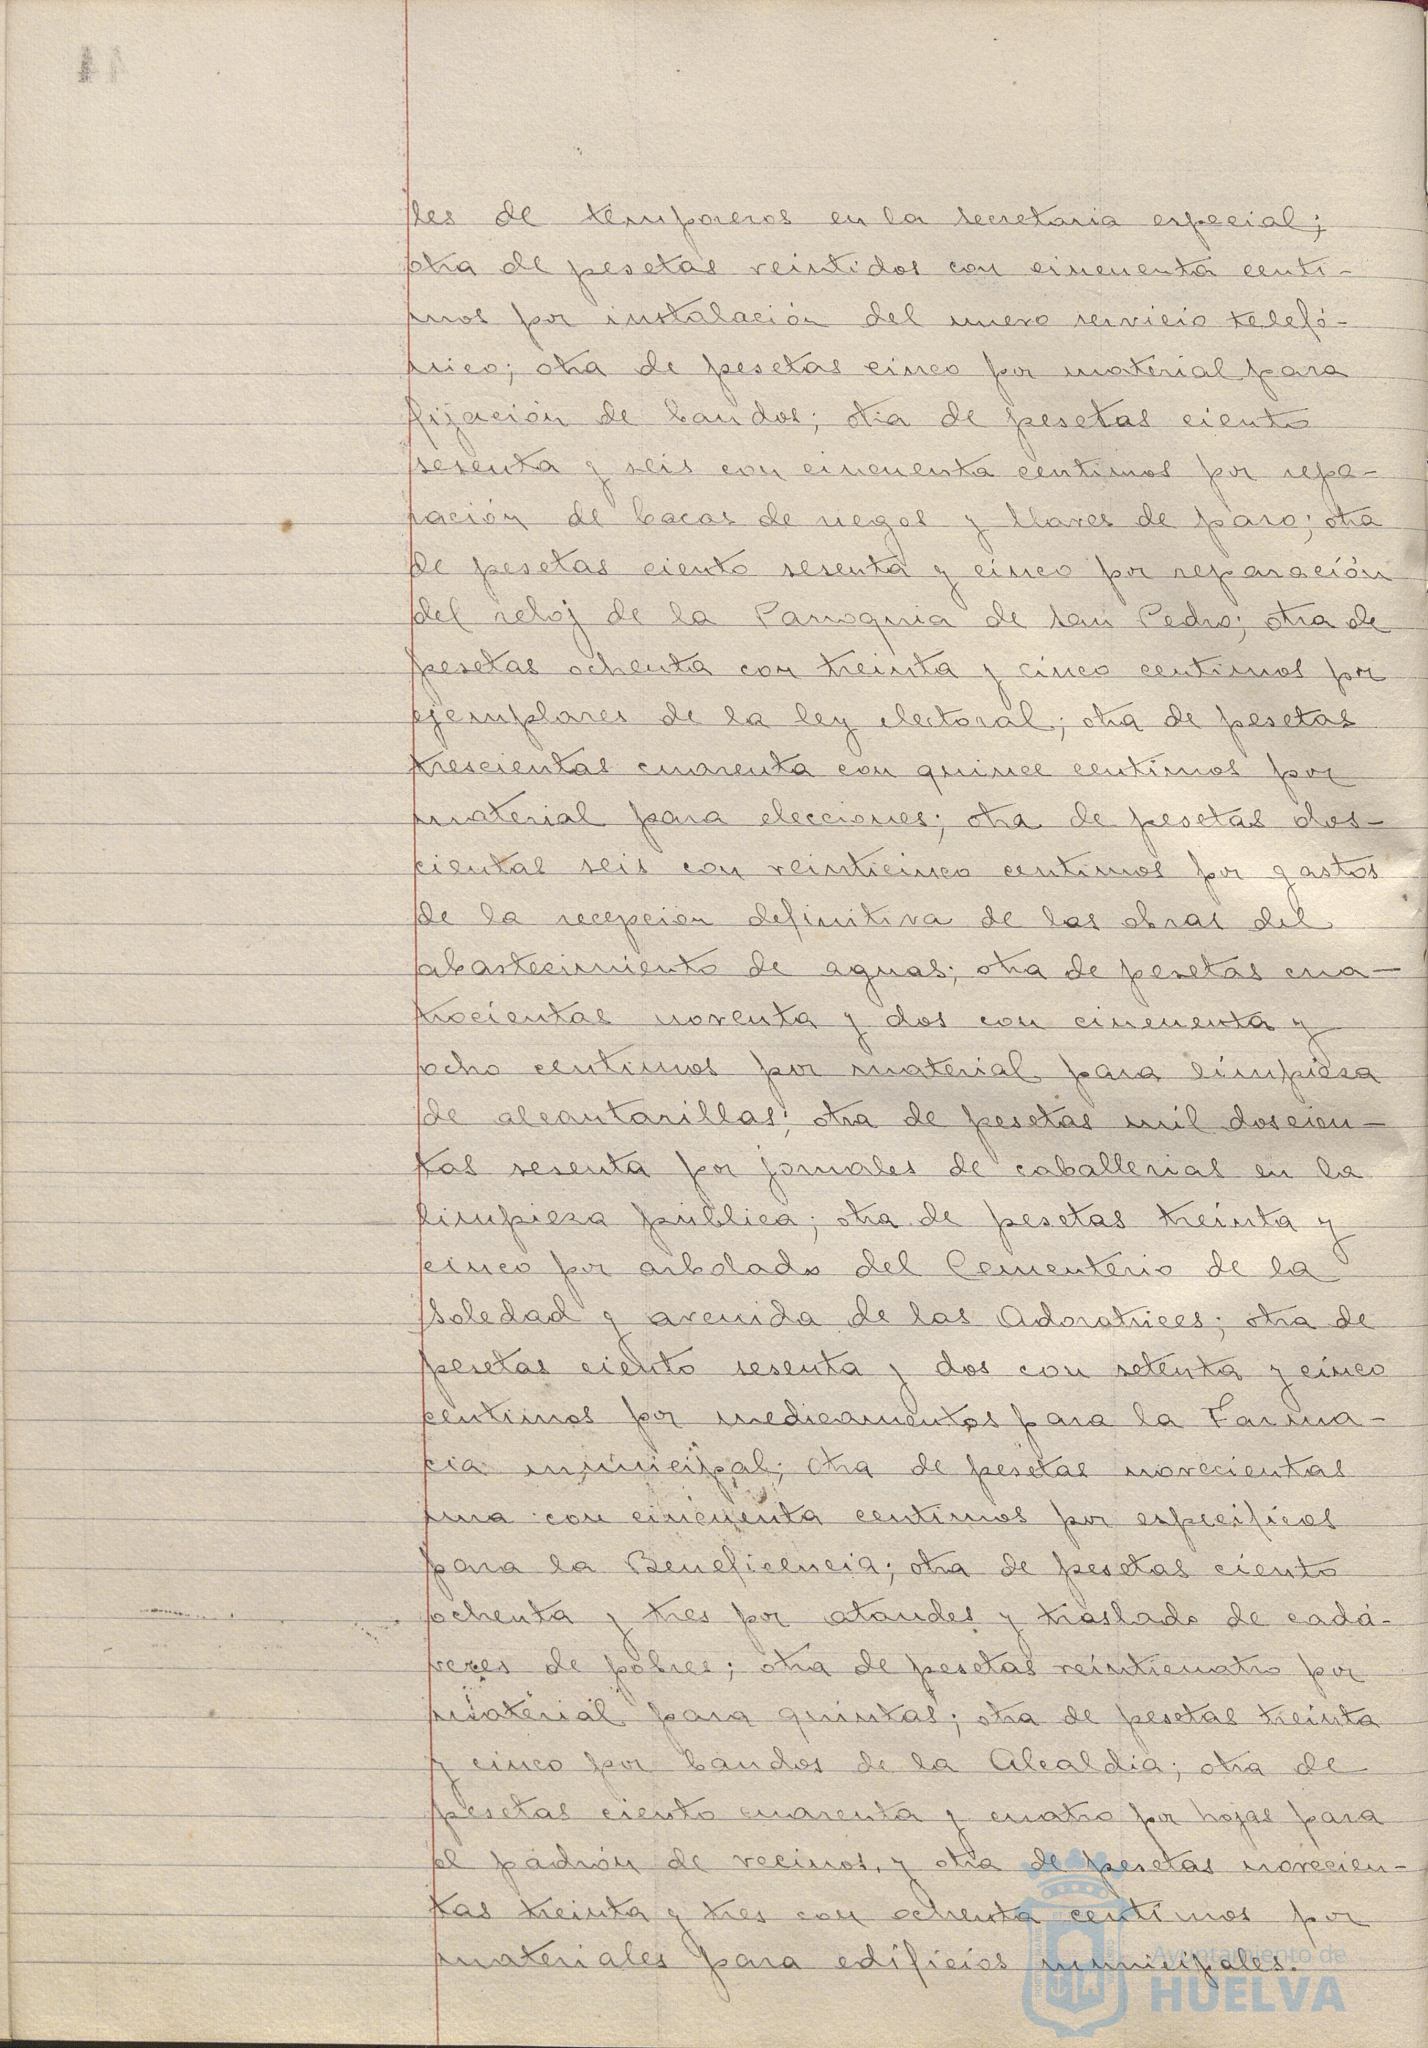 44
les de temporeros en la secretaria especial;
otra de pesetas veintidos con cincuenta centi-
mos por instalación del nuevo servicio telefó-
nico; otra de pesetas cinco por material para
fijación de bandos; otra de pesetas ciento
sesenta y seis con cincuenta centimos por repa-
ración de bocas de riegos y llaves de paso; otra
de pesetas ciento sesenta y cinco por reparación
del reloj de la Parroquia de San Pedro; otra de
pesetas ochenta con treinta y cinco centimos por
ejemplares de la ley electoral; otra de pesetas
trescientas cuarenta con quince centimos por
material para elecciones; otra de pesetas dos-
cientas seis con veinticinco centimos por gastos
de la recepción definitiva de las obras del
abastecimiento de aguas; otra de pesetas cua-
trocientas noventa y dos con cincuenta y
ocho centimos por material para limpieza
de alcantarillas; otra de pesetas mil doscien-
tas sesenta por jornales de caballerias en la
limpieza publica; otra de pesetas treinta y
cinco por arbolado del Cementerio de la
Soledad y avenida de las Adoratrices; otra de
pesetas ciento sesenta y dos con setenta y cinco
centimos por medicamentos para la Farma-
cia municipal; otra de pesetas novecientas
una con cincuenta centimos por especificos
para la Beneficencia; otra de pesetas ciento
ochenta y tres por ataudes y traslado de cadá-
veres de pobres; otra de pesetas veinticuatro por
material para quintas; otra de pesetas treinta
y cinco por bandos de la Alcaldia; otra de
pesetas ciento cuarenta y cuatro por hojas para
el padrón de vecinos, y otra de pesetas novecien-
tas treinta y tres con ochenta centimos por
materiales para edificios municipales.
Ayuntamiento de
HUELVA